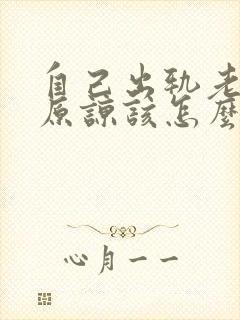 自己出轨老
原谅该怎麼
心月一一